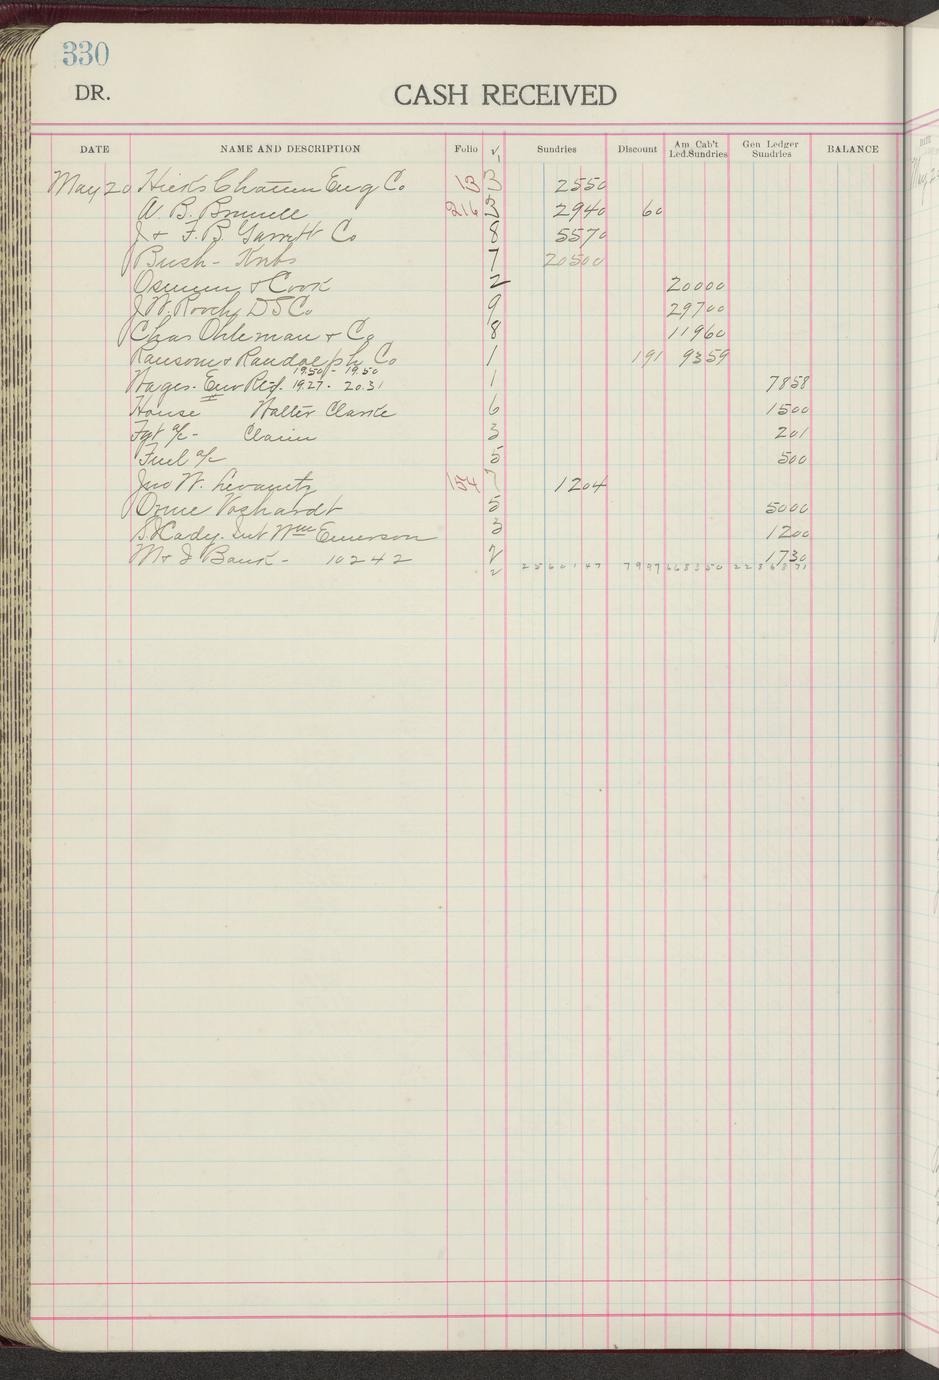 330
DR. CASH RECEIVED
DATE NAME AND DESCRIPTION Folio √ Sundries Discount Am Cab't Led.Sundries Gen Ledger Sundries BALANCE
May 20 Hicks Chatum Eng Co 13 3 2550
A. B. Bonnell 216 3 2940 60
J & F. B. Garrett Co 8 5570
Bush - Knbs 7 20500
Osmun & Cook 2 20000
J. W. Roody D S Co 9 29700
Chas Ohleman & Co 8 11960
Ransom & Randolph Co 1 191 9359
19.50 - 19.50
Wages - Env Reg. 19.27 - 20.31 1 7858
House " Walter Clarke 6 1500
Fgt a/c - Claim 3 201
Fuel a/c 5 500
Jno W. 154 7 1204
Orme Voshardt 5 5000
Cady. Int Wm Emerson 3 1200
M & J Bank - 10242 2 1730
2 2560147 7997 668350 2236871